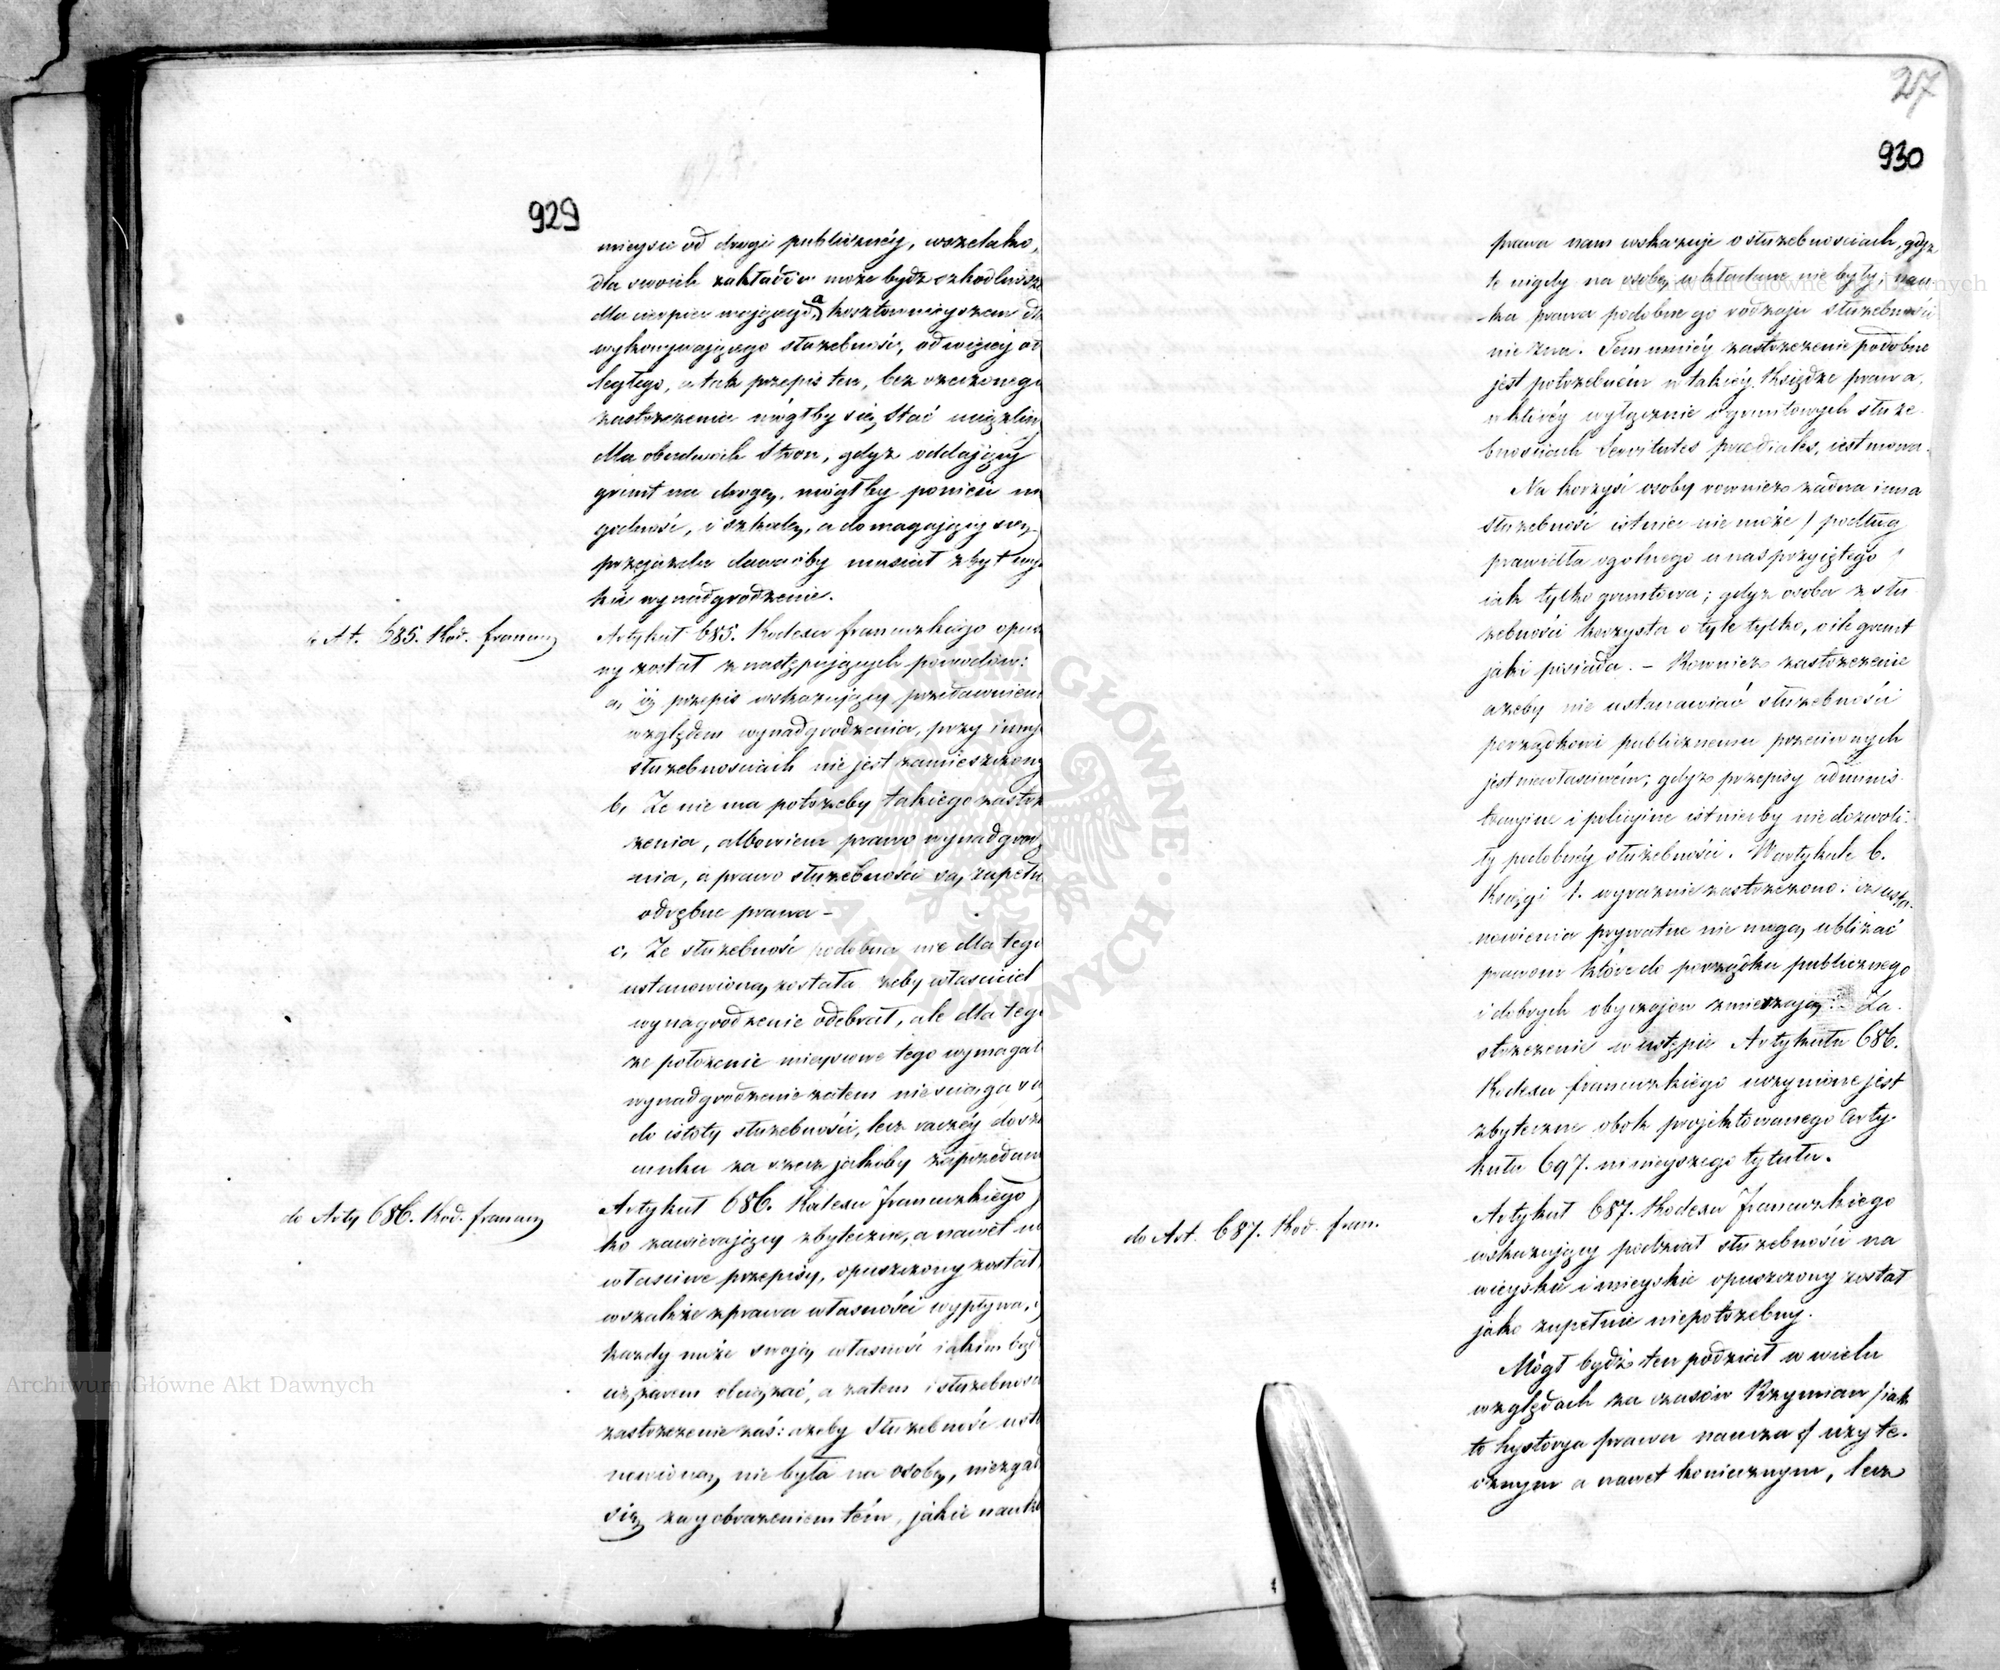 929
mieysce od drogi publicznéy, wszelako,
dla swoich zakładów może bydź szkodliwsze
dla cierpiącego, a kosztownieyszem dla
wykonywającego służebność, od więcéy od
ległego, a tak przepis ten, bez rzeczonego
zastrzeżenia mógłby się stać uciążliwy
dla obudwóch Stron, gdyż oddający
grunt na drogę, mógłby ponieść
godność, i szkodę, a domagający się
przejazdu dawaćby musiał zbyt
kie wynadgrodzenie.
Art. 685. Kod. francuz
Artykuł 685. Kodexu francuzkiego opusz
ny został z następujących powodów:
a, iż przepis wskazujący przedawnienie
względem wynadgrodzenia, przy innych
służebnosciach nie jest zamieszczony
b, Że nie ma potrzeby takiego zastrze
żenia, albowiem prawo wynadgrodze
nia, a prawo służebności są, zupełnie
odrębne prawa –
c, Że służebność podobna nie dla tego
ustanowioną została żeby właściciel
wynagrodzenie odebrał, ale dla tego
że położenie mieyscowe tego wymagało
wynadgrodzenie zatem nie sciąga się
do istoty służebności, lecz raczéy do sza
unku za rzecz jakoby zaprzedaną
do Arty 686. Kod. francuz
Artykuł 686. Kodexu francuzkiego
ko zawierający zbyteczne, a nawet nie
własciwe przepisy, opuszczony został,
wszakże z prawa własności wypływa, iż
każdy może swoją własność iakim bądź
ciężarem obciążać, a zatem i służebnoscią
zastrzeżenie zaś: ażeby służebność usta
nowioną, nie była na osobę, niezga
się z wyobrażeniem tém, jakie nauka
217
930
prawa nam wskazuje o służebnosciach, gdyż
te nigdy na osobę wkładane nie były, nau-
-ka prawa podobnego rodzaju służebności
nie zna. Tem mniéy zastrzeżenie podobne
jest potrzebném w takiéy Księdze prawa,
w któréy wyłącznie o gruntowych służe-
bnosciach Servitutes praediales, iest mowa.
Na korzyść osoby rownież żadna inna
służebność istnieć nie może / podług
prawidła ogolnego u nas przyiętego /
iak tylko gruntowa; gdyż osoba z słu
żebności korzysta o tyle tylko, o ile grunt
jaki posiada. – Rownież zastrzeżenie
ażeby nie ustanawiać służebności
porządkowi publicznemu przeciwnych
jest niewłasciwém; gdyż przepisy adminis-
tracyjne i policyine istnieć by nie dozwoli-
ły podobnéy służebności. W artykule 6.
Księgi 1. wyraznie zastrzeżono: iż usta-
nowienia prywatne nie mogą ubliżać
prawom które do porządku publicznego
i dobrych obyczajów zmierzają: Za-
strzeżenie w wstępie Artykułu 686.
Kodexu francuzkiego uczynione jest
zbyteczne obok projektowanego Arty-
kułu 697. ninieyszego tytułu.
do Art. 687. Kod. fran.
Artykuł 687. Kodexu francuzkiego
wskazujący podział służebności na
wieyskie i mieyskie opuszczony został
jako zupełnie niepotrzebny.
Mógł bydź ten podział w wielu
względach za czasów Rzymian / iak
to hystorya prawa naucza / użyte-
cznym a nawet koniecznym, lecz
Archiwum Główne Akt Dawnych
Archiwum Główne Akt Dawnych
ARCHIWUM GŁÓWNE · AKT DAWNYCH ·